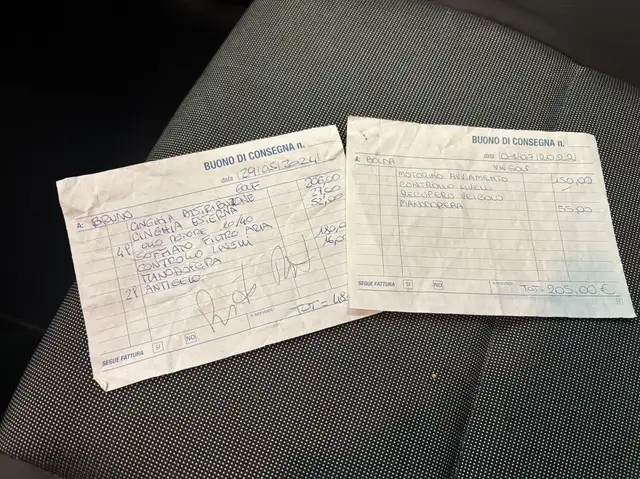 BUONO DI CONSEGNA n.
data 29/05/2024
A: BRUNO GOLF
CINGHIA DISTRIBUZIONE 206,00
CINGHIA ESTERNA 27,00
4P OLIO MOTORE 10/40 52,00
SOFFIATO FILTRO ARIA
CONTROLLO LIVELLI
MANODOPERA
2P ANTIGELO 16,00
TOT=
SEGUE FATTURA SI NO
BUONO DI CONSEGNA n.
data 01/07/2022
A: VW GOLF
MOTORINO AVVIAMENTO 150,00
CONTROLLO LIVELLI
RECUPERO VEICOLO
MANODOPERA 55,00
SEGUE FATTURA SI NO TOT= 205,00 €